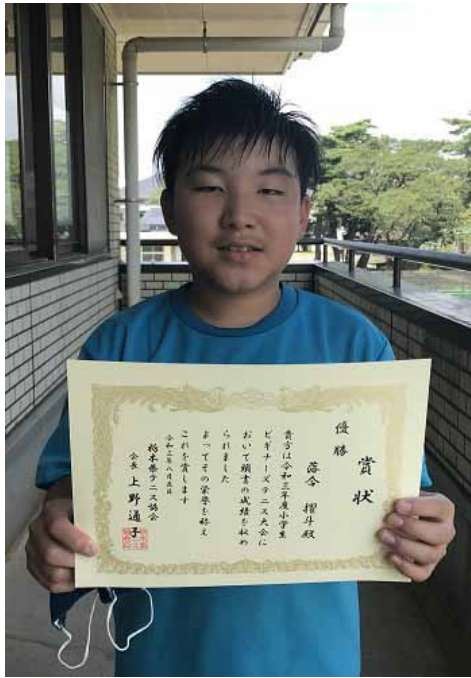 賞状
優勝
落合 摺斗殿
貴方は令和三年度小学生
ビギナーズテニス大会に
おいて頭書の成績を収め
られました
よってその栄誉を称え
これを賞します
令和三年八月五日
栃木県テニス協会
会長 上野通子